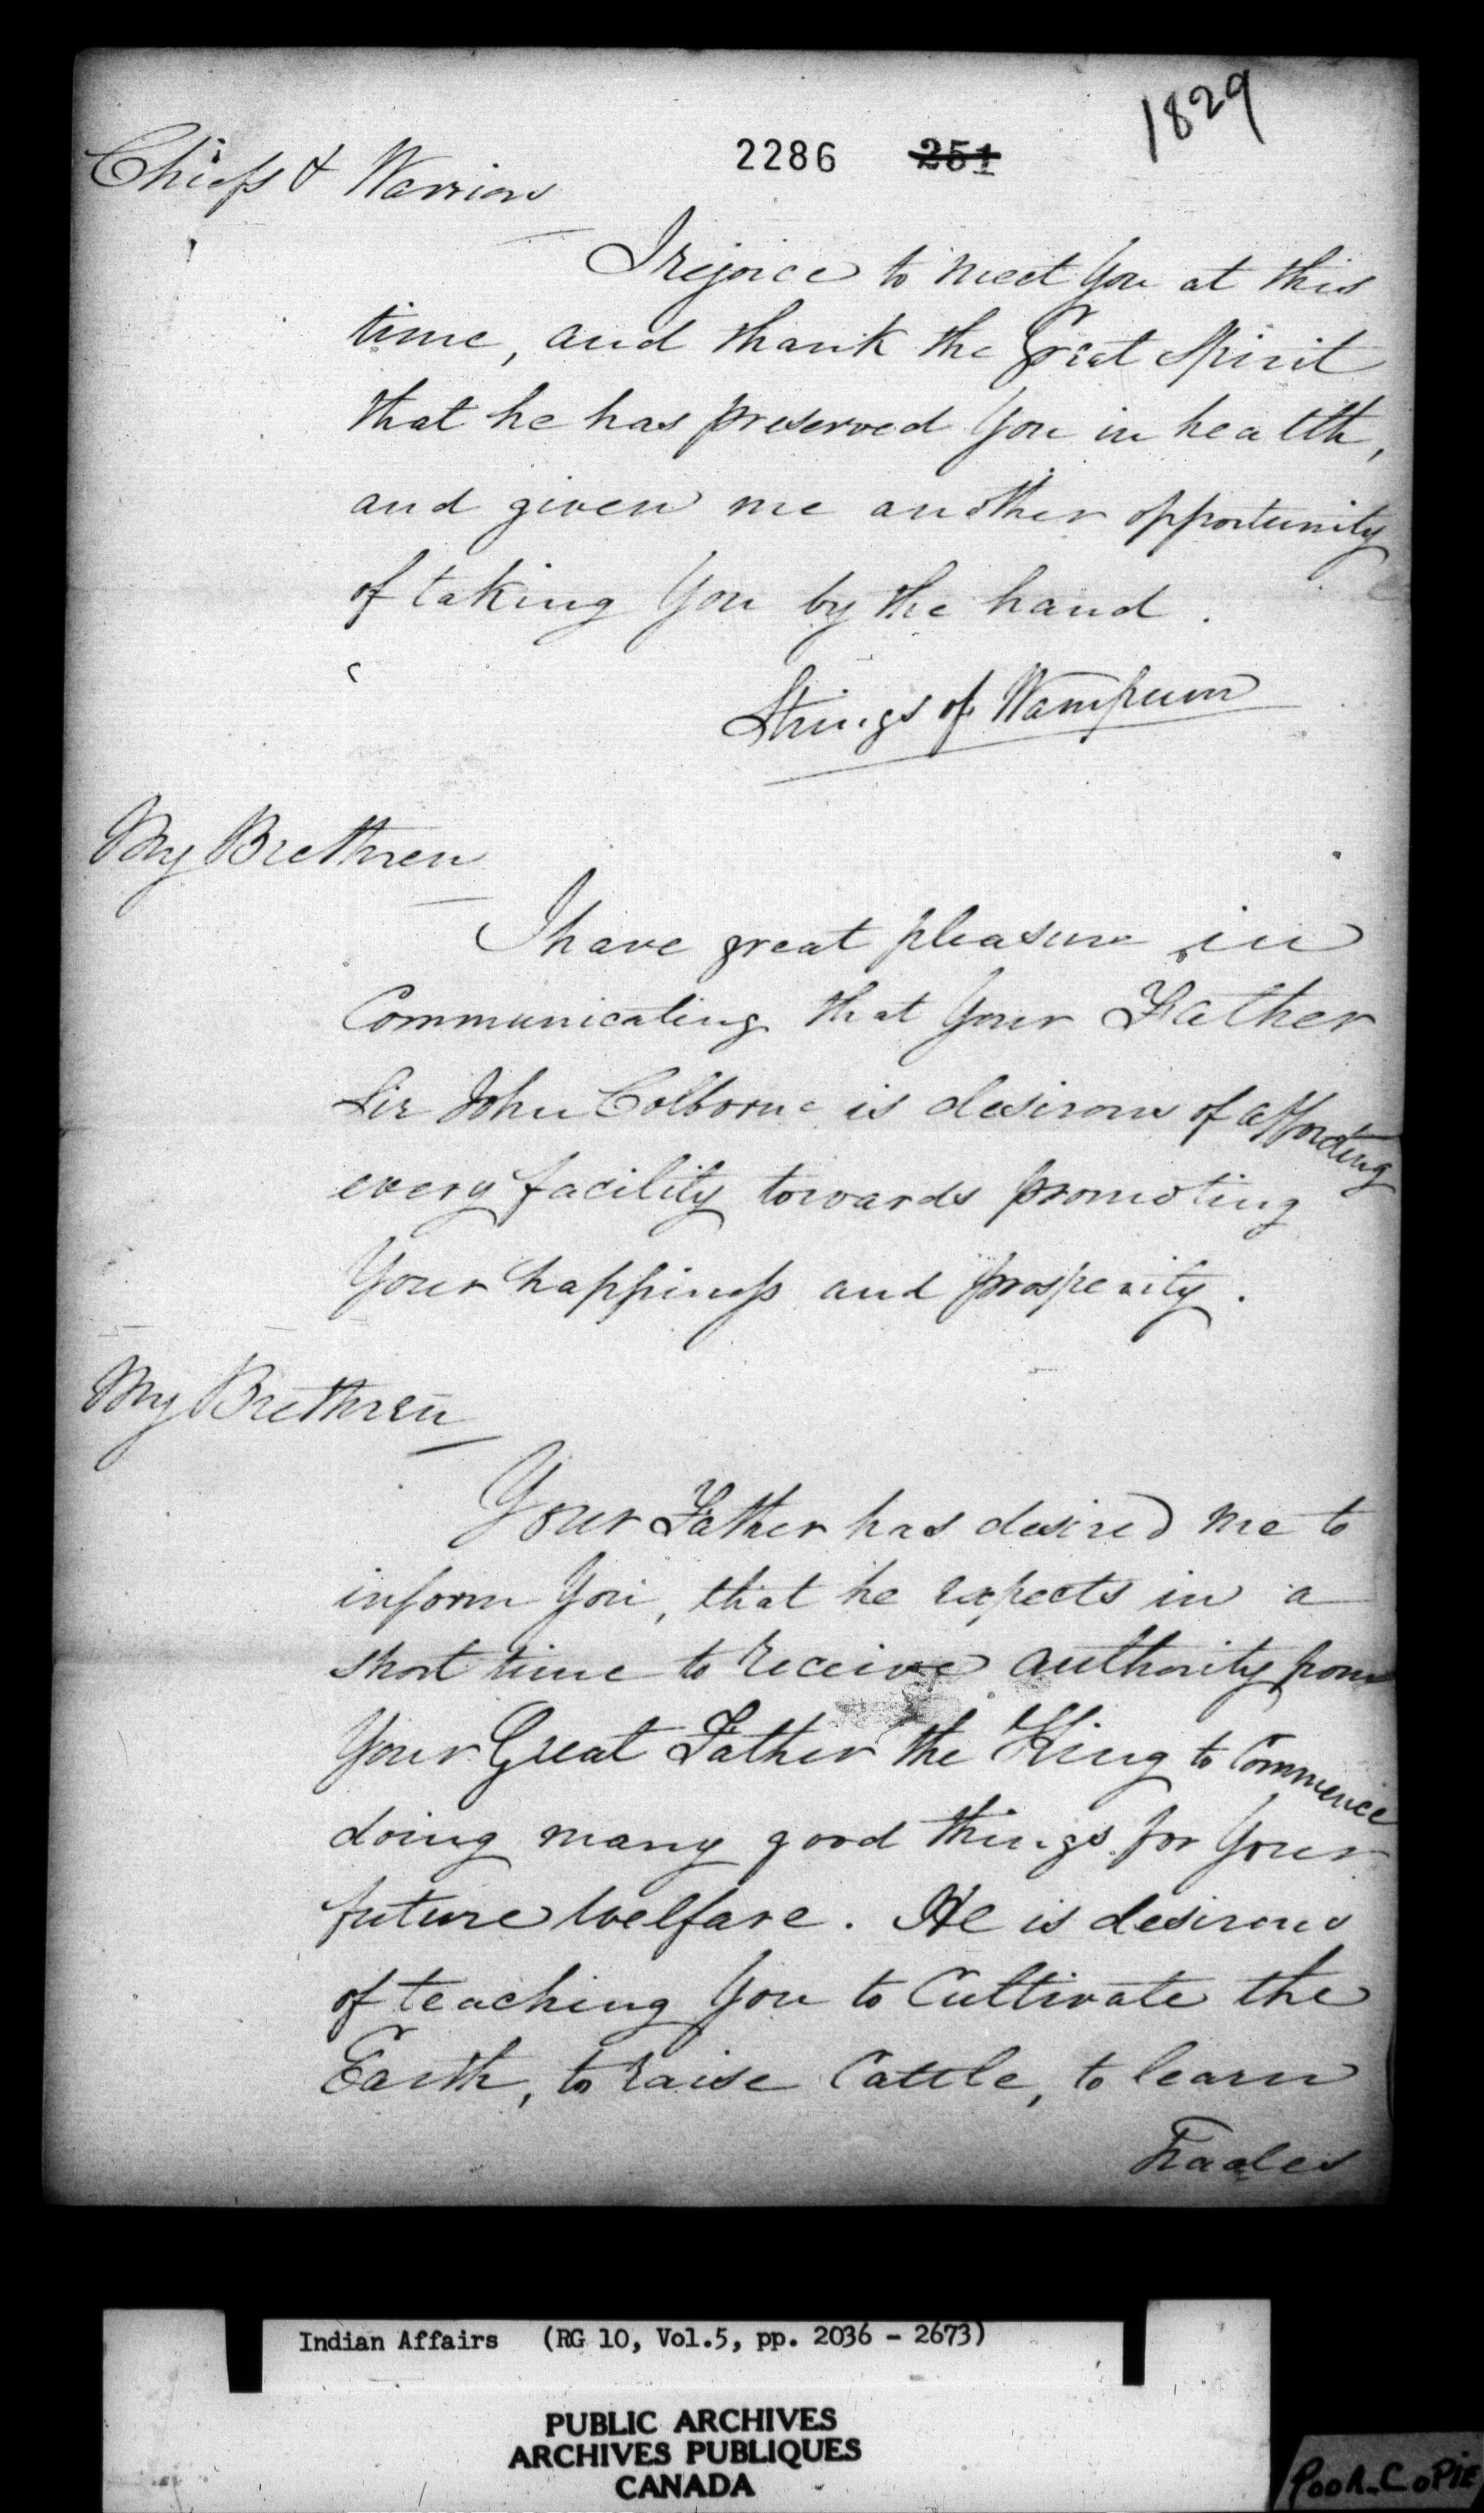 1829
2286 251
Chiefs & Warriors
I rejoice to meet You at this
time, and thank the Great Spirit
that he has preserved You in health,
and given me another opportunity
of taking You by the hand.
Strings of Wampum
My Brethren
I have great pleasure in
Communicating that Your Father
Sir John Colborne is desirous of affording
every facility towards promoting
Your happiness and prosperity.
My Brethren
Your Father has desired me to
inform You, that he expects in a
short time to receive authority from
Your Great Father the King to Commence
doing many good things for Your
future welfare. He is desirous
of teaching You to Cultivate the
Earth, to raise Cattle, to learn
Trades
Indian Affairs (RG 10, Vol.5, pp. 2036 - 2673)
PUBLIC ARCHIVES
ARCHIVES PUBLIQUES
CANADA
POOR COPIE